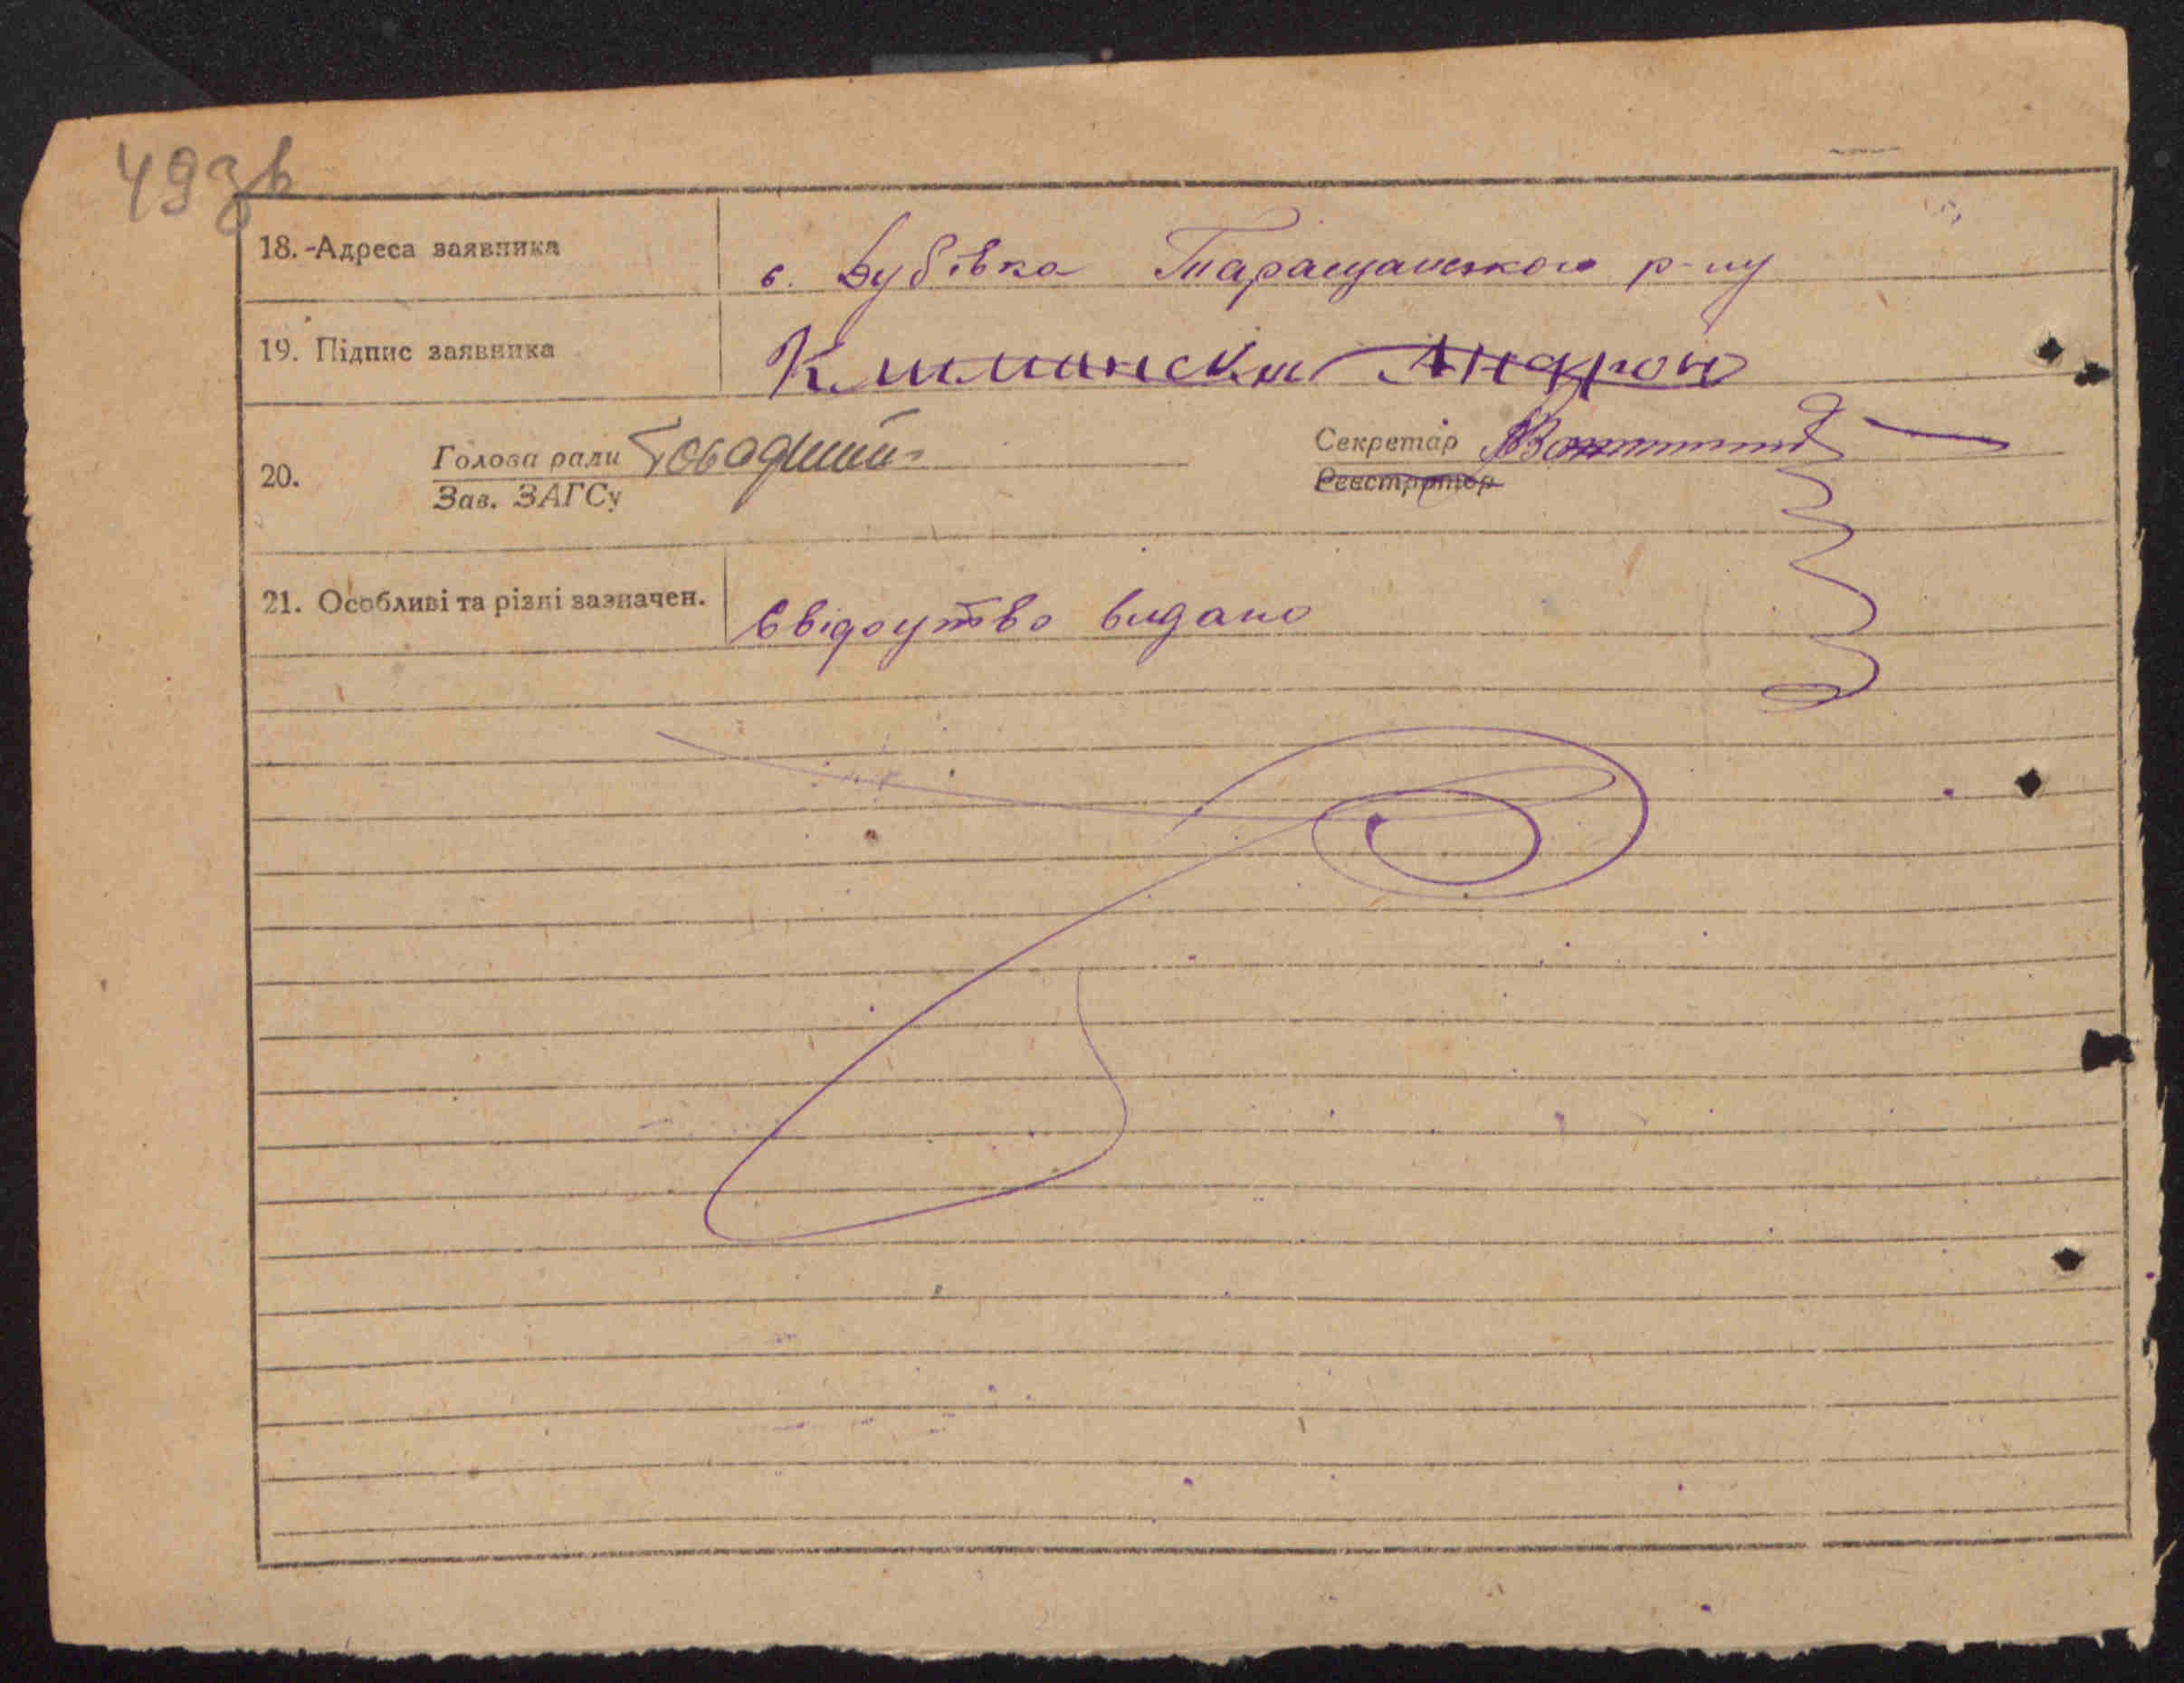 49зв
18. Адреса заявника
с. Дубівка Таращанського р-ну
19. Підпис заявника
Климански Андрон
20.
Голова ради
Зав. ЗАГСу
Секретар
Реєстратор
21. Особливі та різні зазначен.
Свідоцтво видано